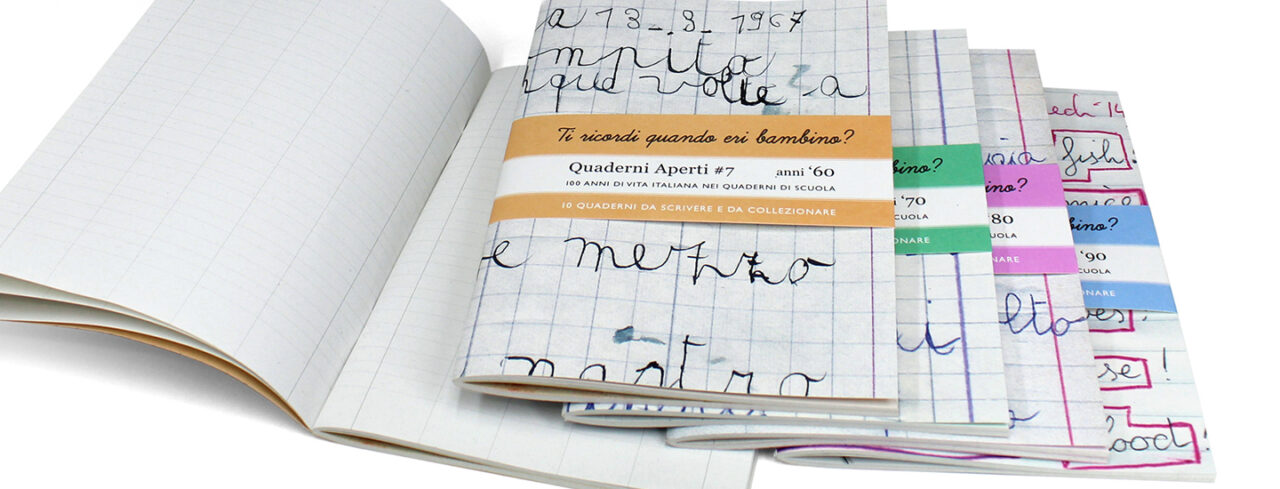 a 13-9-1967
mpita
que volte a
Ti ricordi quando eri bambino?
Quaderni Aperti #7 anni '60
100 ANNI DI VITA ITALIANA NEI QUADERNI DI SCUOLA
10 QUADERNI DA SCRIVERE E DA COLLEZIONARE
e mezzo
nastro
bino?
'70
CUOLA
ONARE
i
ino?
80
SCUOLA
NARE
lto
edi '14
fish!
bino?
'90
CUOLA
NARE
se!
ood!